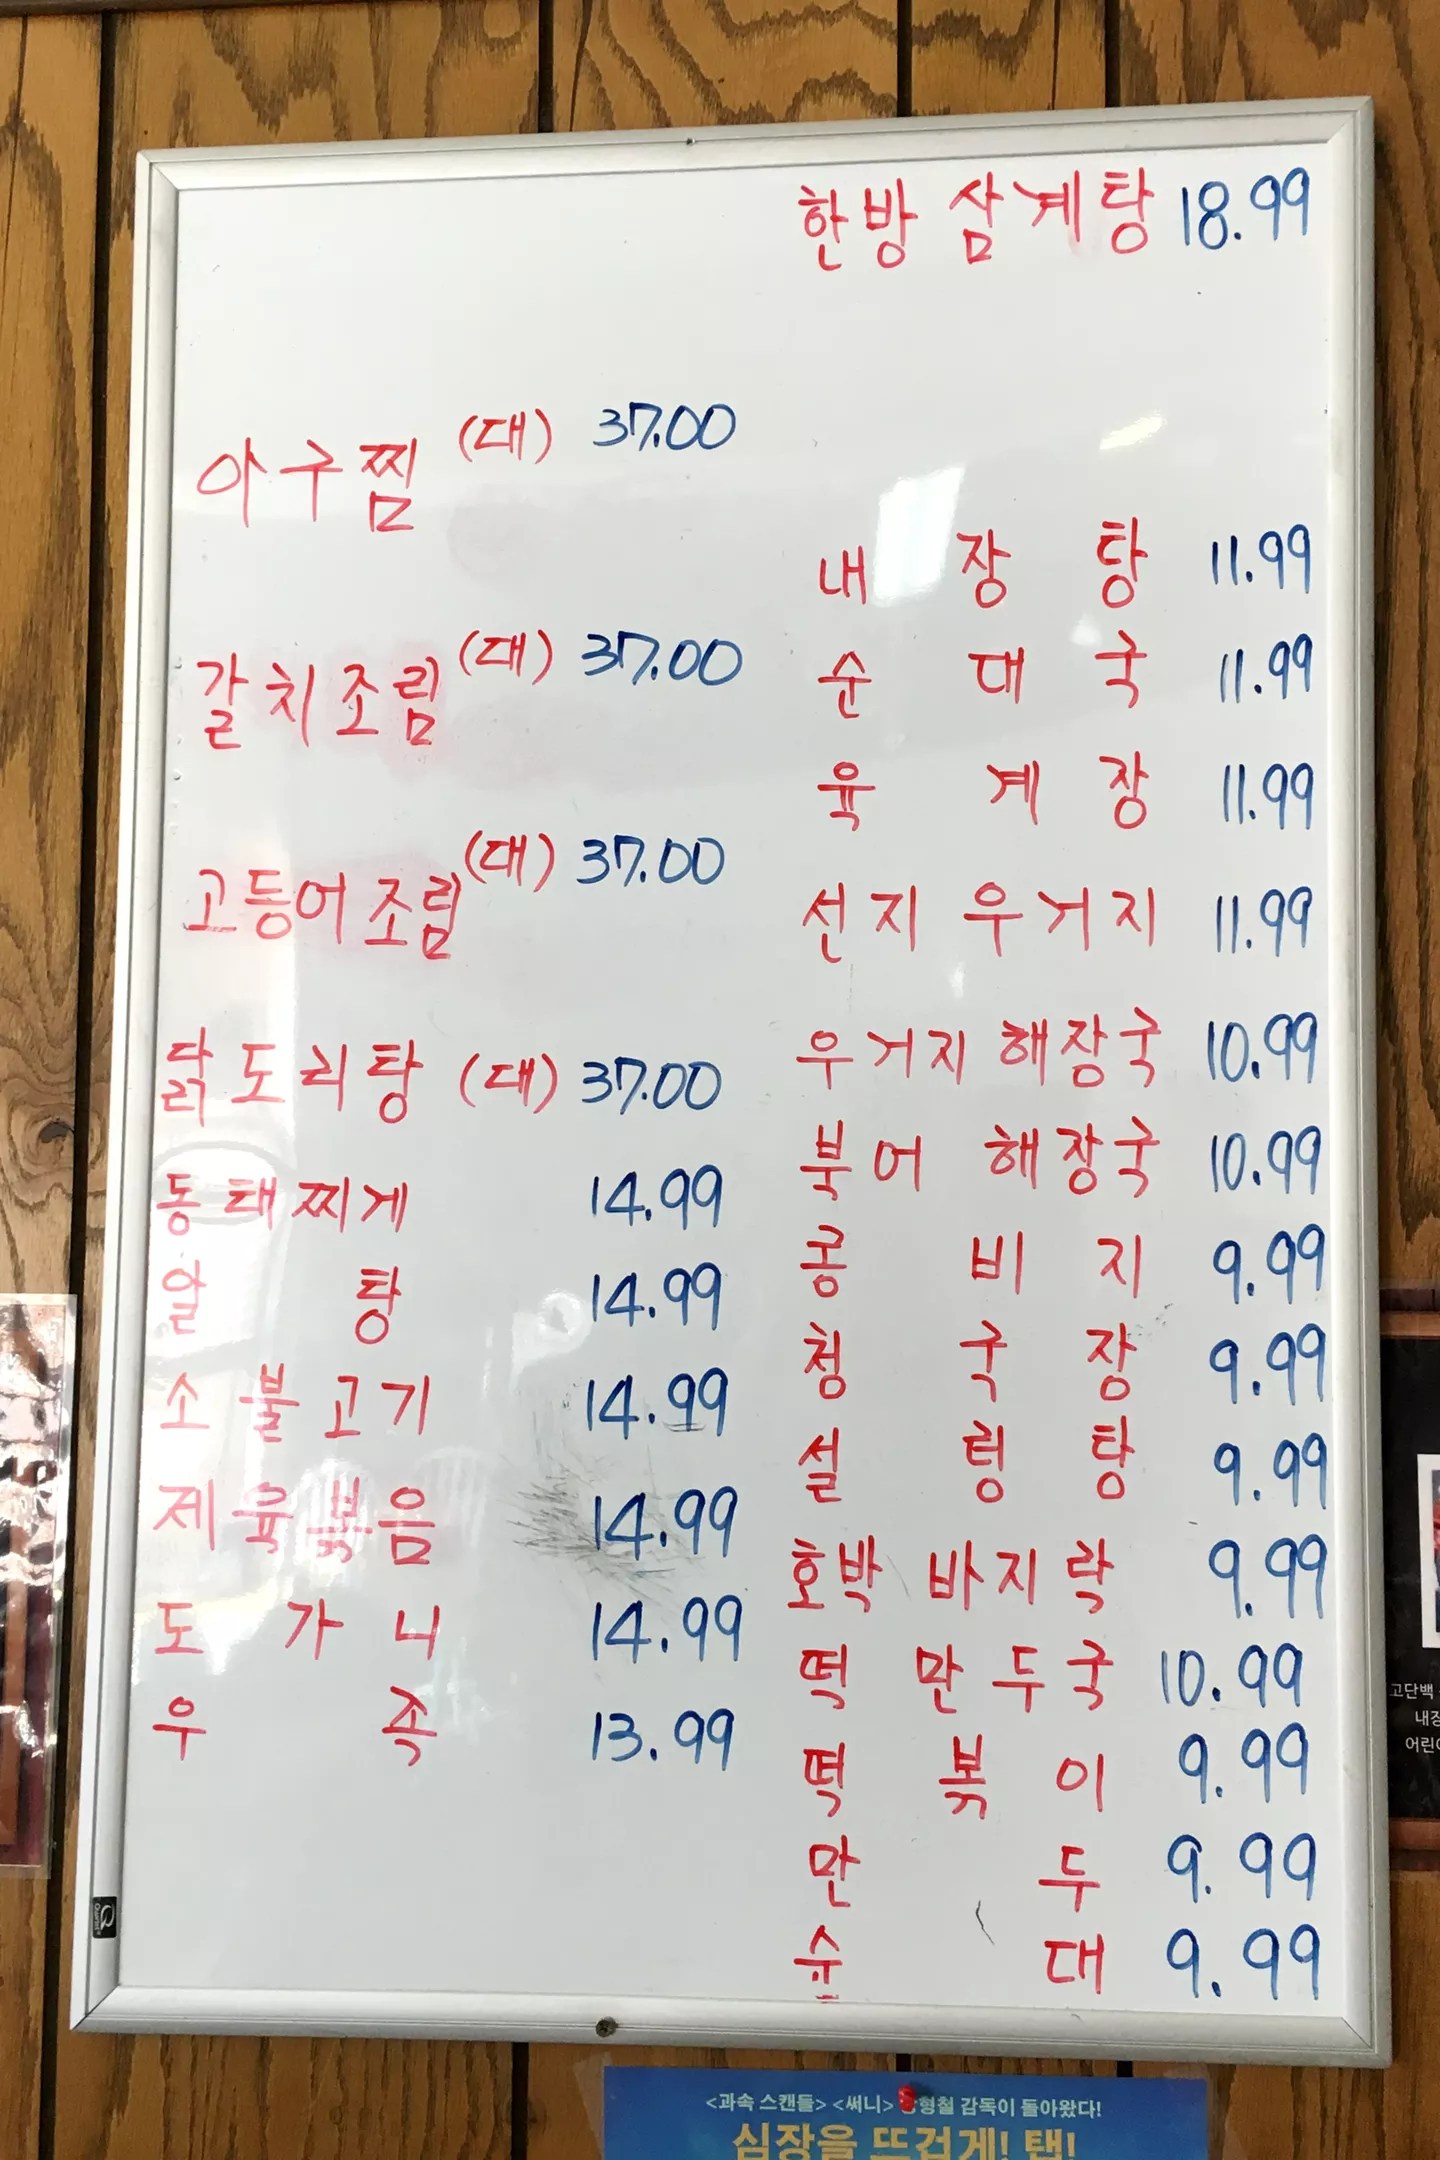 한방 삼계탕 18.99
아구찜 (대) 37.00
갈치조림 (대) 37.00
고등어조림 (대) 37.00
닭도리탕 (대) 37.00
동태찌게 14.99
알탕 14.99
소불고기 14.99
제육볶음 14.99
도가니 14.99
우족 13.99
내장탕 11.99
순대국 11.99
육계장 11.99
선지우거지 11.99
우거지 해장국 10.99
북어 해장국 10.99
콩비지 9.99
청국장 9.99
설렁탕 9.99
호박 바지락 9.99
떡만두국 10.99
떡볶이 9.99
만두 9.99
순대 9.99
고단백
<과속 스캔들> <써니> 형철 감독이 돌아왔다!
심장을 뜨겁게! 탭!